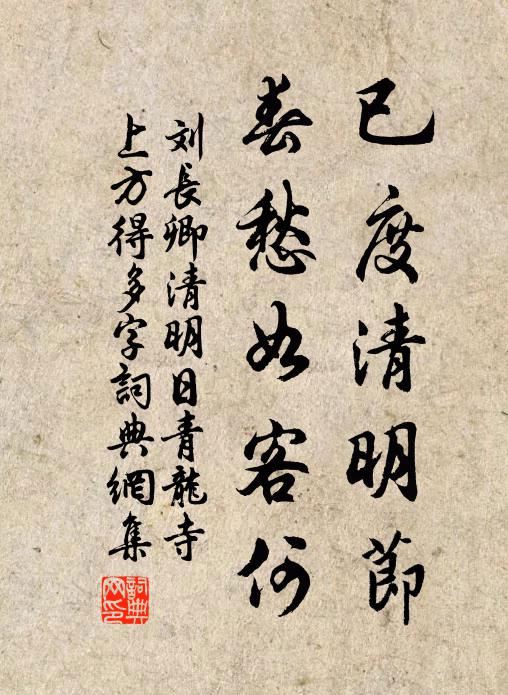 已度清明節
春愁如客何
刘長卿清明日青龍寺
上方得多字詞典網集
詞典
网印